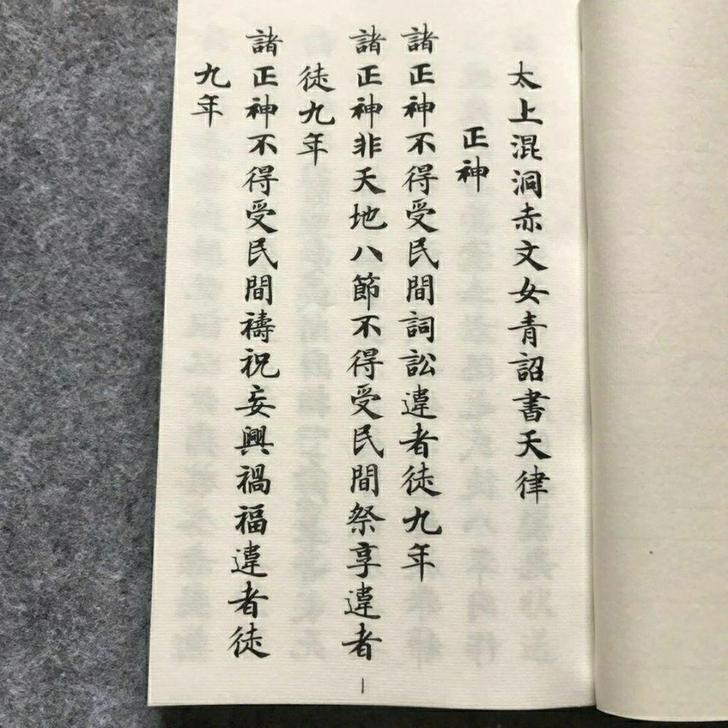 太上混洞赤文女青詔書天律
正神
諸正神不得受民間詞訟違者徒九年
諸正神非天地八節不得受民間祭享違者
徒九年
諸正神不得受民間禱祝妄興禍福違者徒
九年
1